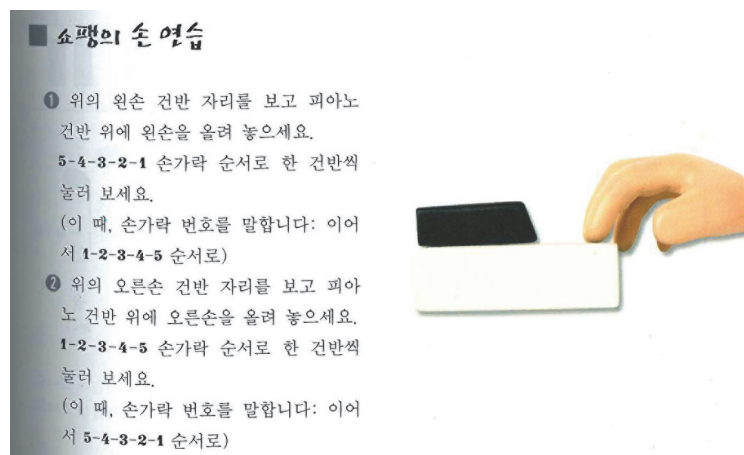 쇼팽의 손 연습
❶ 위의 왼손 건반 자리를 보고 피아노
건반 위에 왼손을 올려 놓으세요.
5-4-3-2-1 손가락 순서로 한 건반씩
눌러 보세요.
(이 때, 손가락 번호를 말합니다: 이어
서 1-2-3-4-5 순서로)
❷ 위의 오른손 건반 자리를 보고 피아
노 건반 위에 오른손을 올려 놓으세요.
1-2-3-4-5 손가락 순서로 한 건반씩
눌러 보세요.
(이 때, 손가락 번호를 말합니다: 이어
서 5-4-3-2-1 순서로)